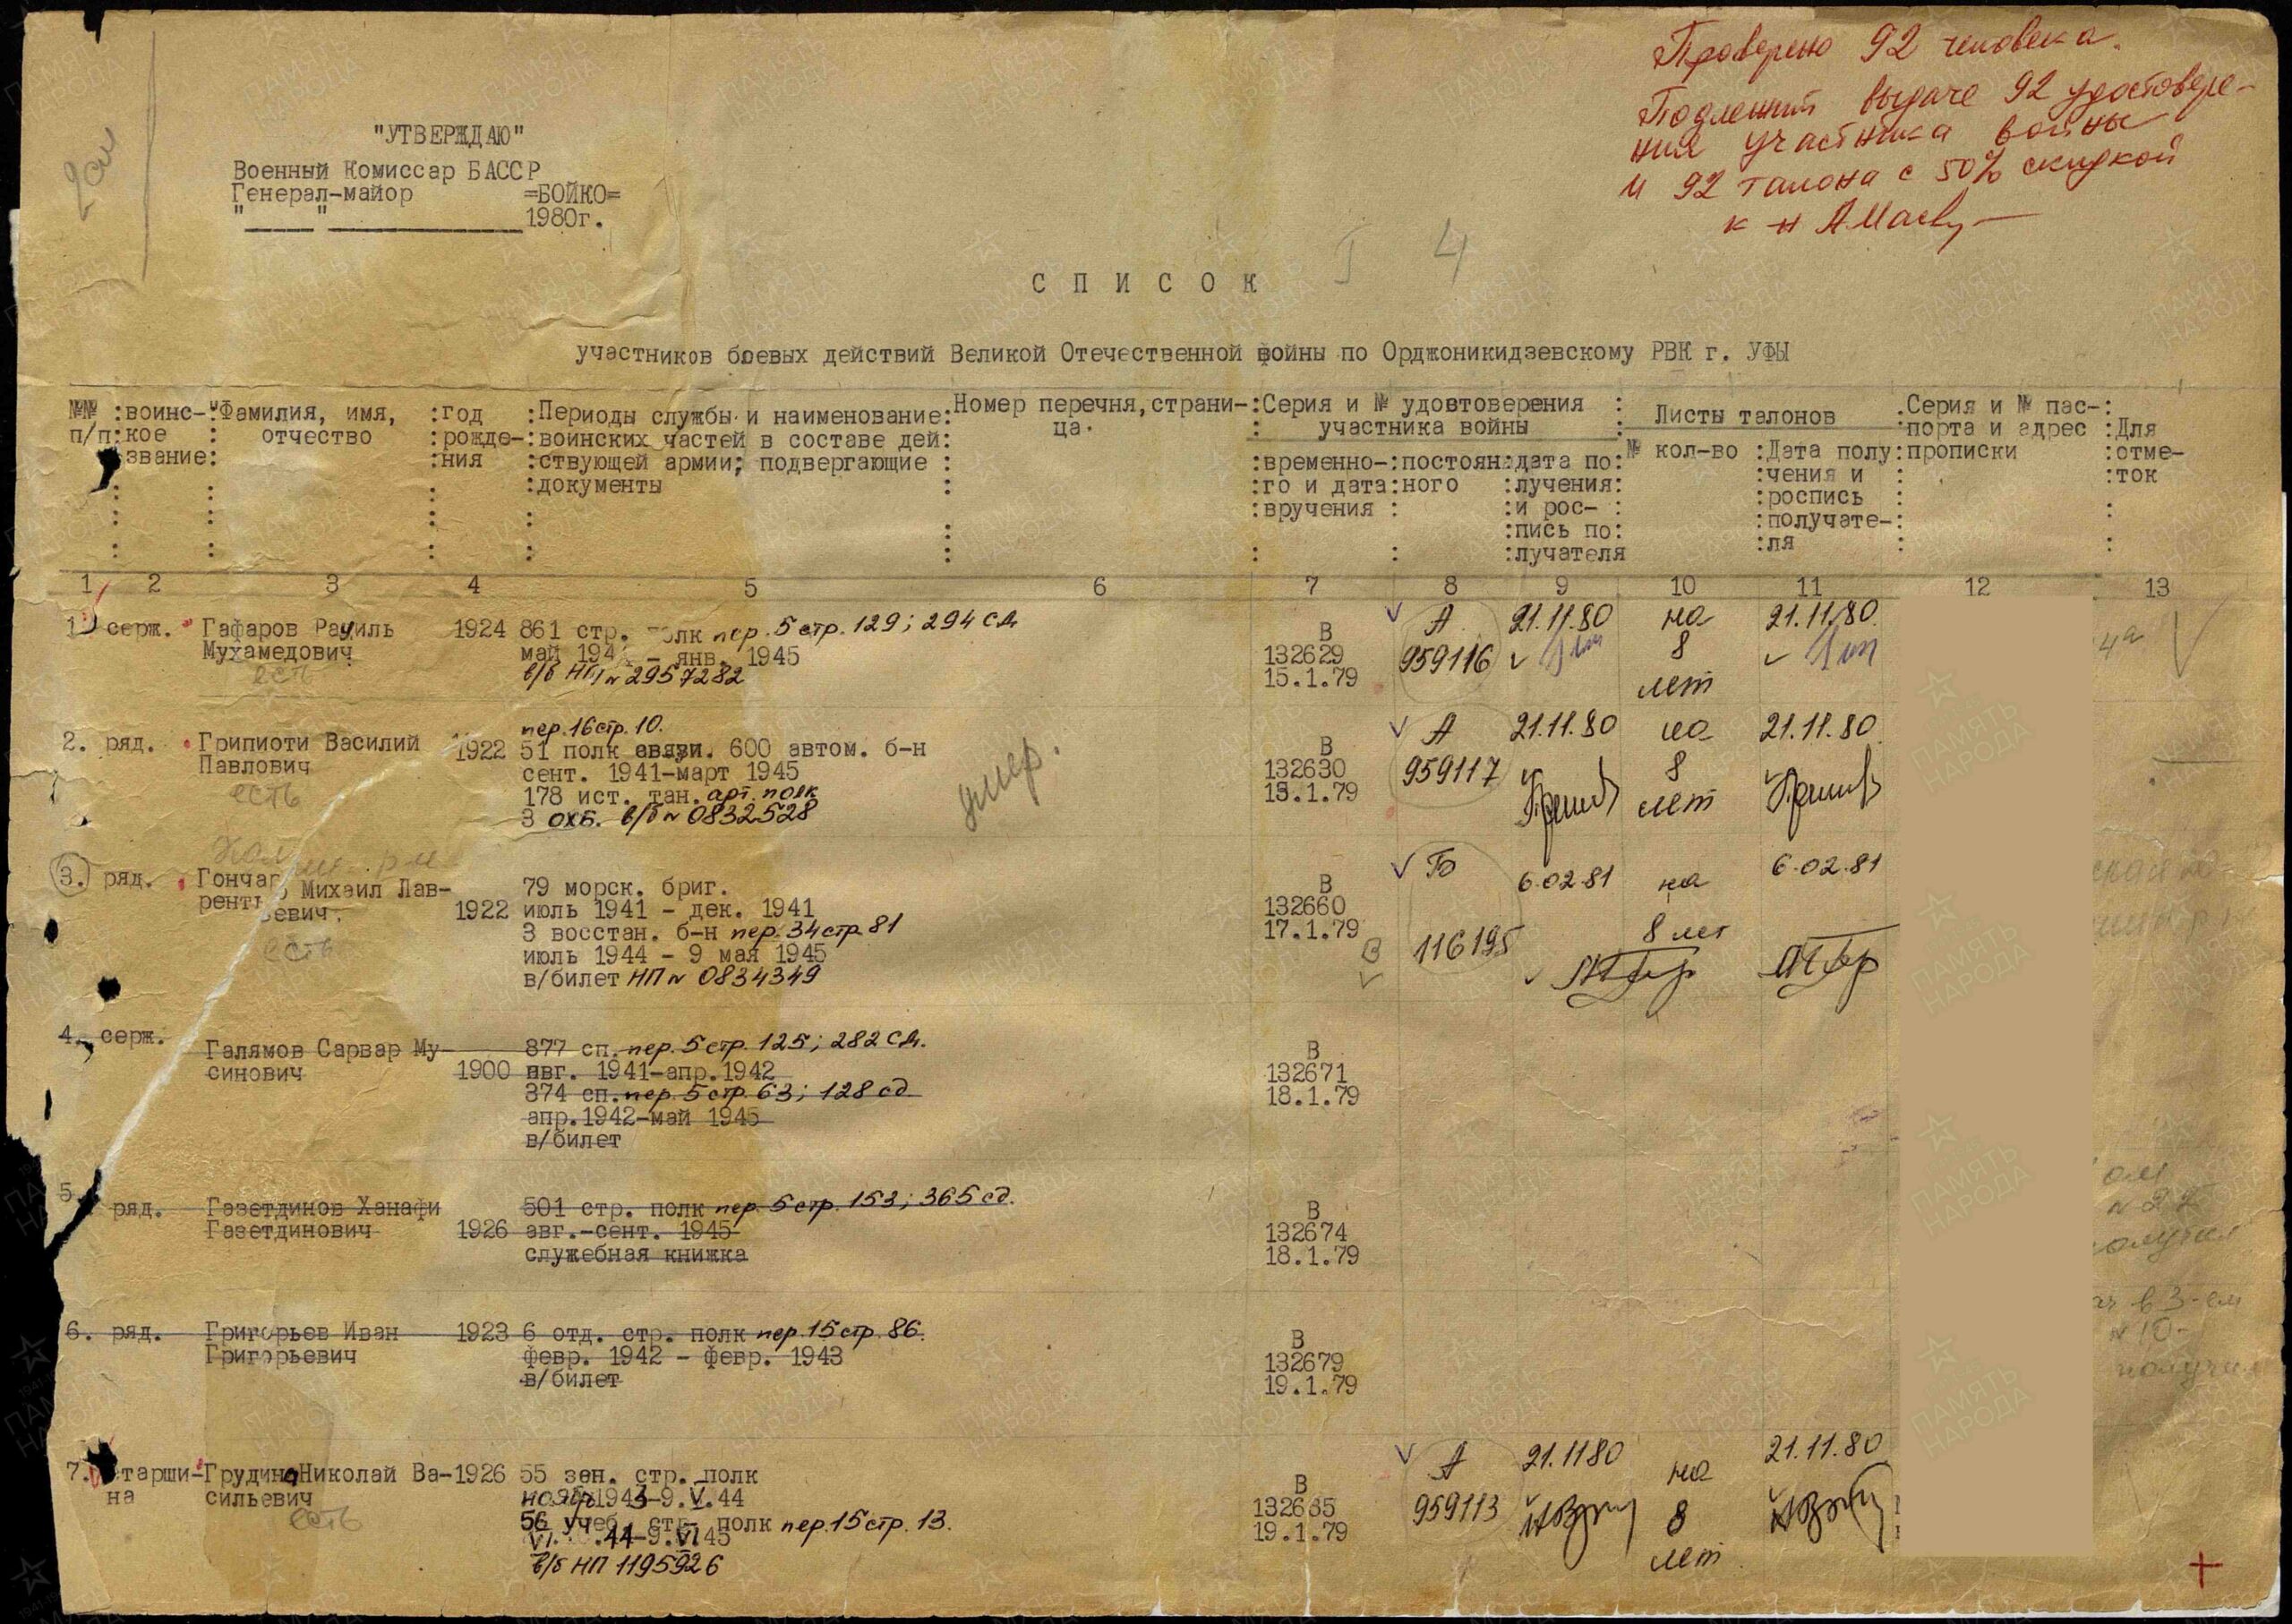 Проверено 92 человека.
Подлежит выдаче 92 удостовере-
ния участника войны
и 92 талона с 50% скидкой
к-н
"УТВЕРЖДАЮ"
Военный Комиссар БАССР
Генерал-майор =БОЙКО=
" " 1980г.
4
С П И С О К
участников боевых действий Великой Отечественной войны по Орджоникидзевскому РВК г. УФЫ
№№ п/п
воинс-
кое
звание
Фамилия, имя,
отчество
год
рожде-
ния
Периоды службы и наименование
воинских частей в составе дей
ствующей армии; подвергающие
документы
Номер перечня, страни-
ца.
Серия и № удовтоверения
участника войны
временно-
го и дата
вручения
постоян
ного
дата по
лучения
и рос-
пись по
лучателя
Листы талонов
№ кол-во
Дата полу
чения и
роспись
получате-
ля
Серия и № пас-
порта и адрес
прописки
Для
отме-
ток
1 2 3 4 5 6 7 8 9 10 11 12 13
1 серж. Гафаров Рауиль 1924 861 стр. полк пер. 5 стр. 129; 294 сд.
Мухамедович май 194 - янв. 1945
есть в/б НП № 2957282
В
132629
15.1.79
А
959116
21.11.80
на
8
лет
21.11.80.
4а
пер. 16 стр. 10.
2. ряд. Грипиоти Василий 1922 51 полк связи. 600 автом. б-н
Павлович сент. 1941-март 1945
есть 178 ист. тан. арт. полк
3 ОХБ. в/б № 0832528
умер.
В
132630
15.1.79
А
959117
21.11.80
на
8
лет
21.11.80.
3. ряд. Гончар Михаил Лав-
ренть евич. 1922
есть
79 морск. бриг.
июль 1941 - дек. 1941
3 восстан. б-н пер. 34 стр. 81
июль 1944 - 9 мая 1945
в/билет НП № 0834349
В
132660
17.1.79
116195
6.02.81
на
8 лет
6.02.81
4. серж. Галямов Сарвар Му-
синович 1900
877 сп. пер. 5 стр. 125; 282 сд.
авг. 1941-апр.1942
374 сп. пер. 5 стр. 63; 128 сд
апр.1942-май 1945
в/билет
В
132671
18.1.79
5 ряд. Газетдинов Ханафи
Газетдинович 1926
501 стр. полк пер. 5 стр. 153; 365 сд.
авг.-сент. 1945
служебная книжка
В
132674
18.1.79
6. ряд. Григорьев Иван 1923 6 отд. стр. полк пер. 15 стр. 86.
Григорьевич февр. 1942 - февр. 1943
в/билет
В
132679
19.1.79
в 3-ем
№ 10-
получил
7. старши- Грудина Николай Ва- 1926 55 зен. стр. полк
на сильевич ноябр 1943-9.V.44
есть 56 учеб. стр. полк пер. 15 стр. 13.
VI. .44-9.VI 45
в/б НП 1195926
В
132685
19.1.79
А
959113
21.11 80
на
8
лет
21.11.80
ПАМЯТЬ
НАРОДА